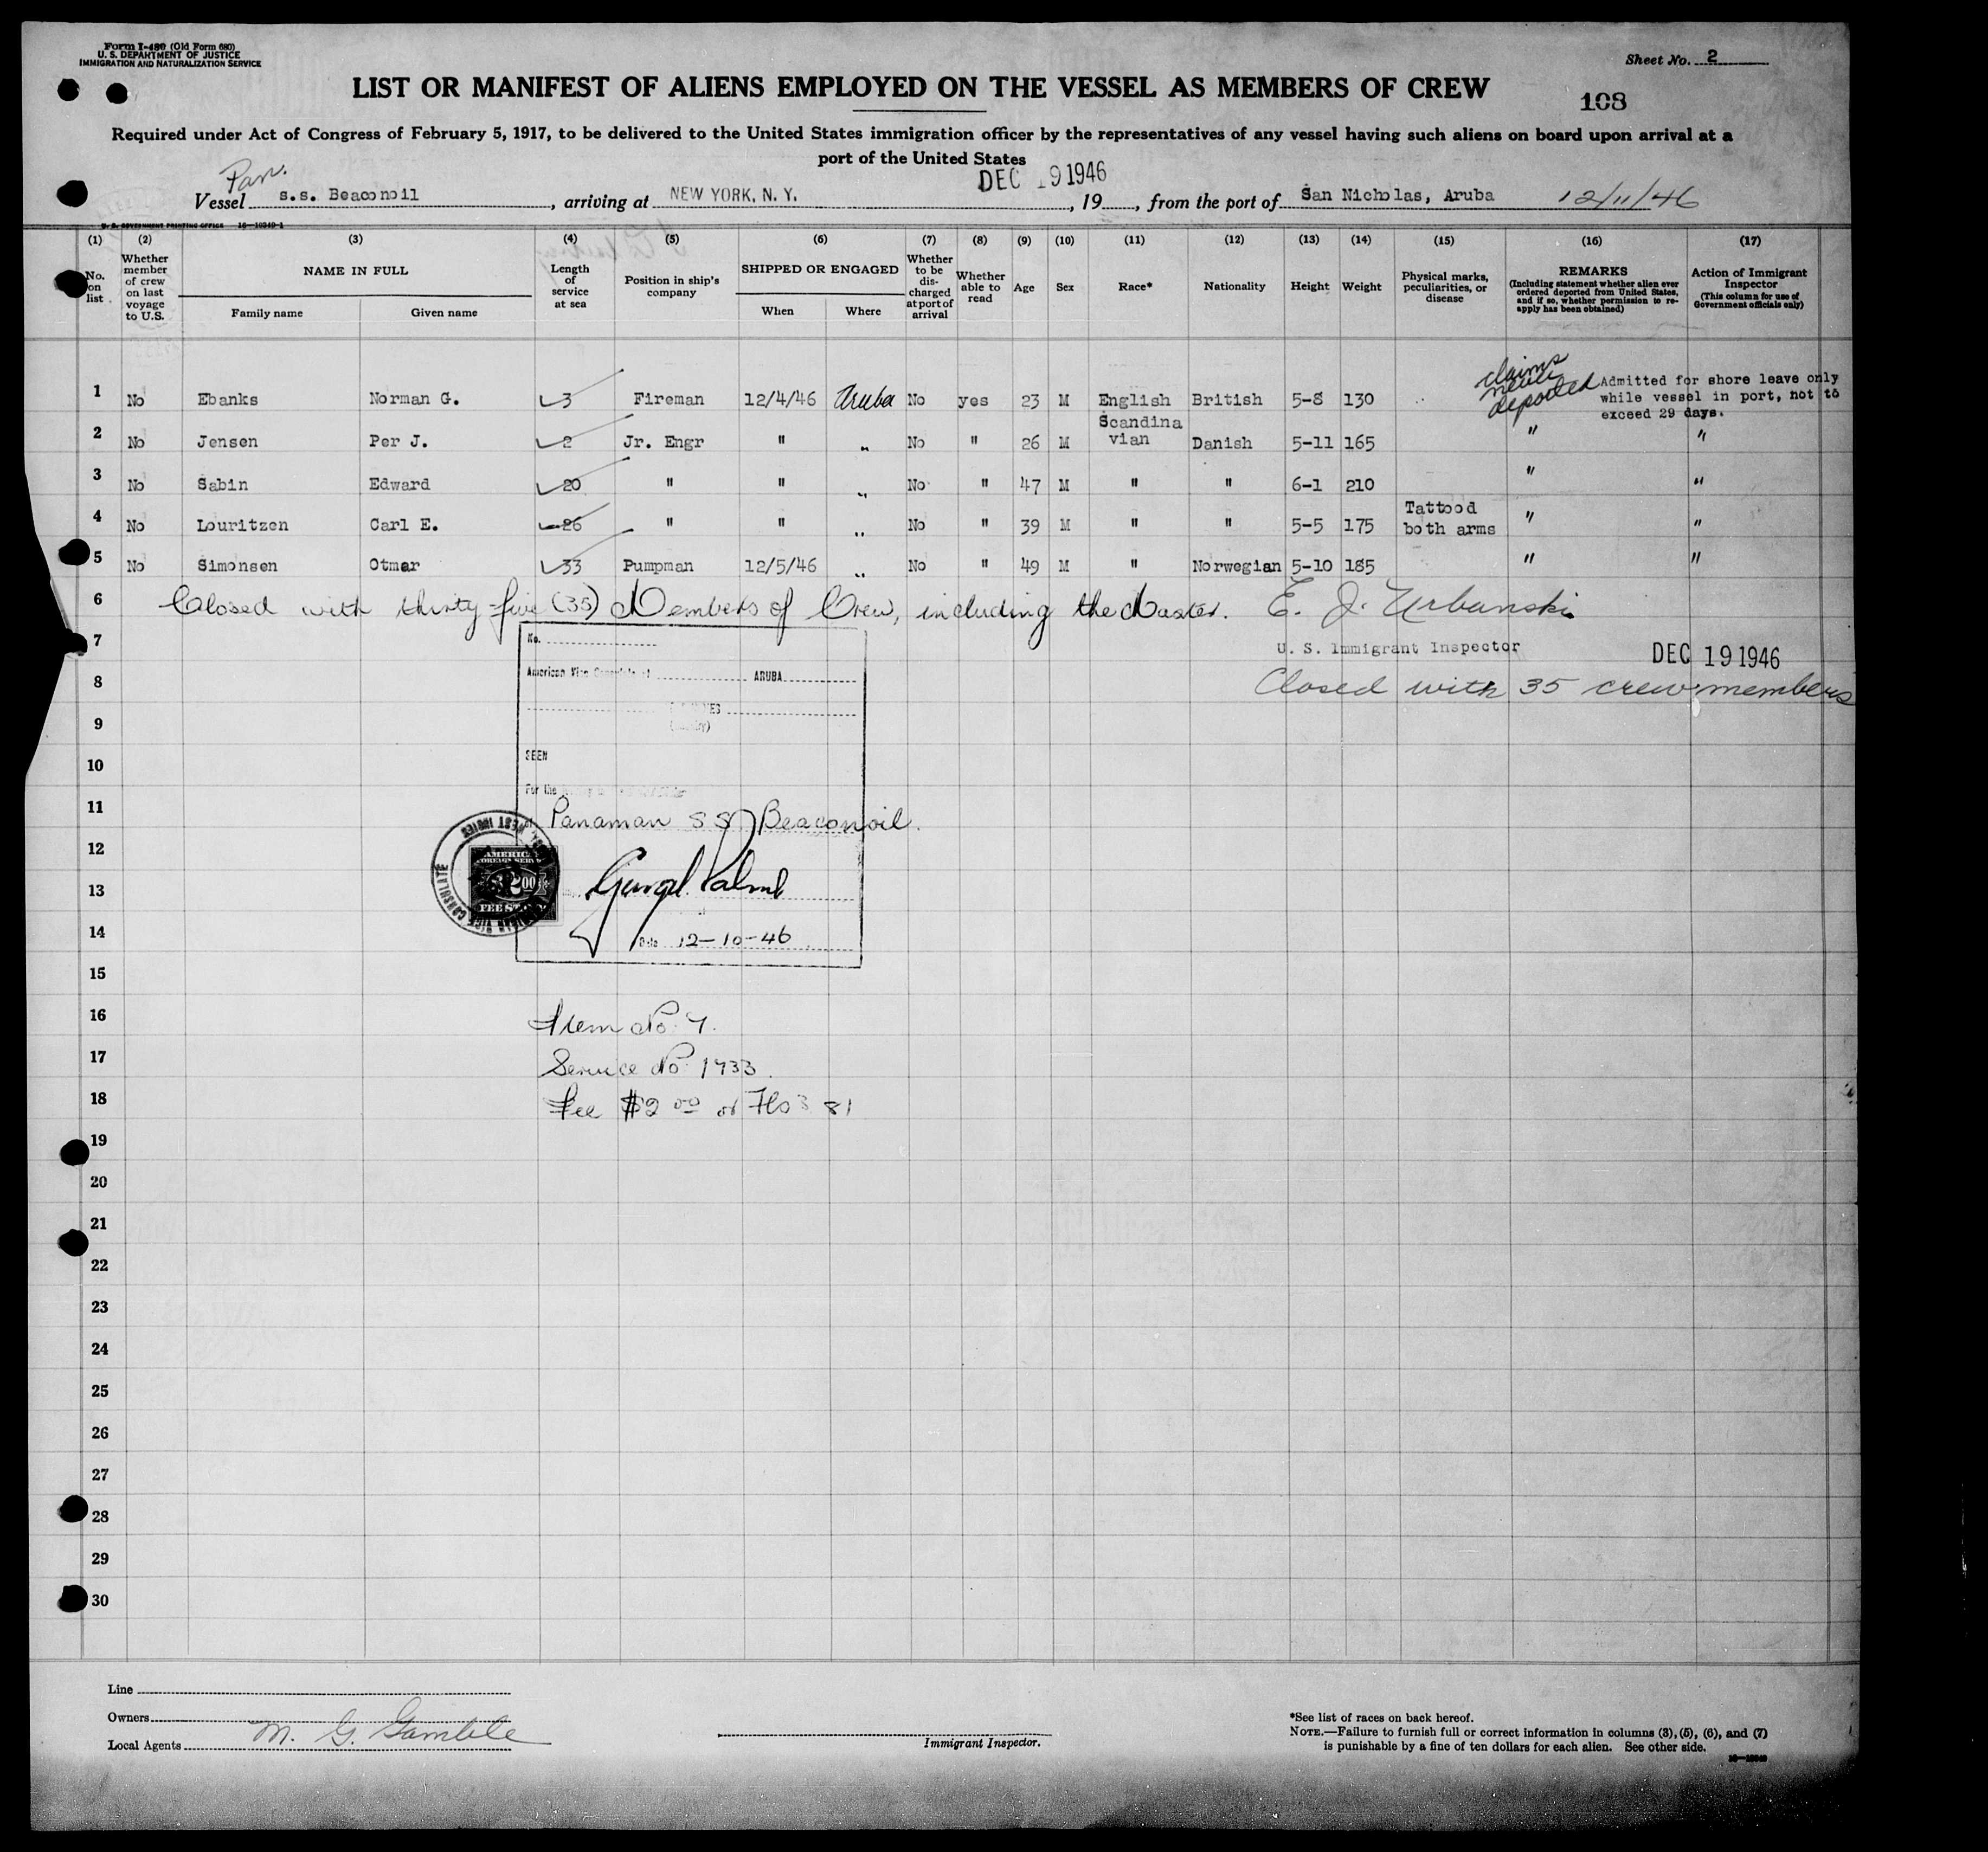 Form I-480 (Old Form 680)
U. S. DEPARTMENT OF JUSTICE
IMMIGRATION AND NATURALIZATION SERVICE
Sheet No. 2
LIST OR MANIFEST OF ALIENS EMPLOYED ON THE VESSEL AS MEMBERS OF CREW
108
Required under Act of Congress of February 5, 1917, to be delivered to the United States immigration officer by the representatives of any vessel having such aliens on board upon arrival at a
port of the United States
Pan.
Vessel s.s. Beaconoil, arriving at NEW YORK, N. Y. DEC 19 1946, 19, from the port of San Nicholas, Aruba 12/11/46
U. S. GOVERNMENT PRINTING OFFICE 16—10349-1
(1) (2) (3) (4) (5) (6) (7) (8) (9) (10) (11) (12) (13) (14) (15) (16) (17)
No. on list
Whether member of crew on last voyage to U.S.
NAME IN FULL
Family name
Given name
Length of service at sea
Position in ship's company
SHIPPED OR ENGAGED
When
Where
Whether to be discharged at port of arrival
Whether able to read
Age
Sex
Race*
Nationality
Height
Weight
Physical marks, peculiarities, or disease
REMARKS
(Including statement whether alien ever ordered deported from United States, and if so, whether permission to reapply has been obtained)
Action of Immigrant Inspector
(This column for use of Government officials only)
1 No Ebanks Norman G. 3 Fireman 12/4/46 Aruba No yes 23 M English British 5-8 130 claims never deported Admitted for shore leave only while vessel in port, not to exceed 29 days.
2 No Jensen Per J. 2 Jr. Engr " " No " 26 M Scandinavian Danish 5-11 165 " "
3 No Sabin Edward 20 " " " No " 47 M " " 6-1 210 " "
4 No Louritzen Carl E. 26 " " " No " 39 M " " 5-5 175 Tattood both arms " "
5 No Simonsen Otmar 33 Pumpman 12/5/46 " No " 49 M " Norwegian 5-10 185 " "
6 Closed with thirty-five (35) Members of Crew, including the Master. E. J. Urbanski
7 No.
U. S. Immigrant Inspector DEC 19 1946
American Vice Consulate at ARUBA
8 Closed with 35 crew members
9
10 SEEN
For the
11 Panaman SS Beaconoil.
12
AMERICAN VICE CONSULATE
WEST INDIES
AMERICAN
FOREIGN SERVICE
$2.00
FEE STAMP
13
14 Date 12-10-46
15
16 Item No. 7.
17 Service No. 1733.
18 Fee $2.00 or Fls 3.81
19
20
21
22
23
24
25
26
27
28
29
30
Line
Owners
Local Agents M. G. Gamble
Immigrant Inspector.
*See list of races on back hereof.
NOTE.—Failure to furnish full or correct information in columns (3), (5), (6), and (7)
is punishable by a fine of ten dollars for each alien. See other side.
16—10349